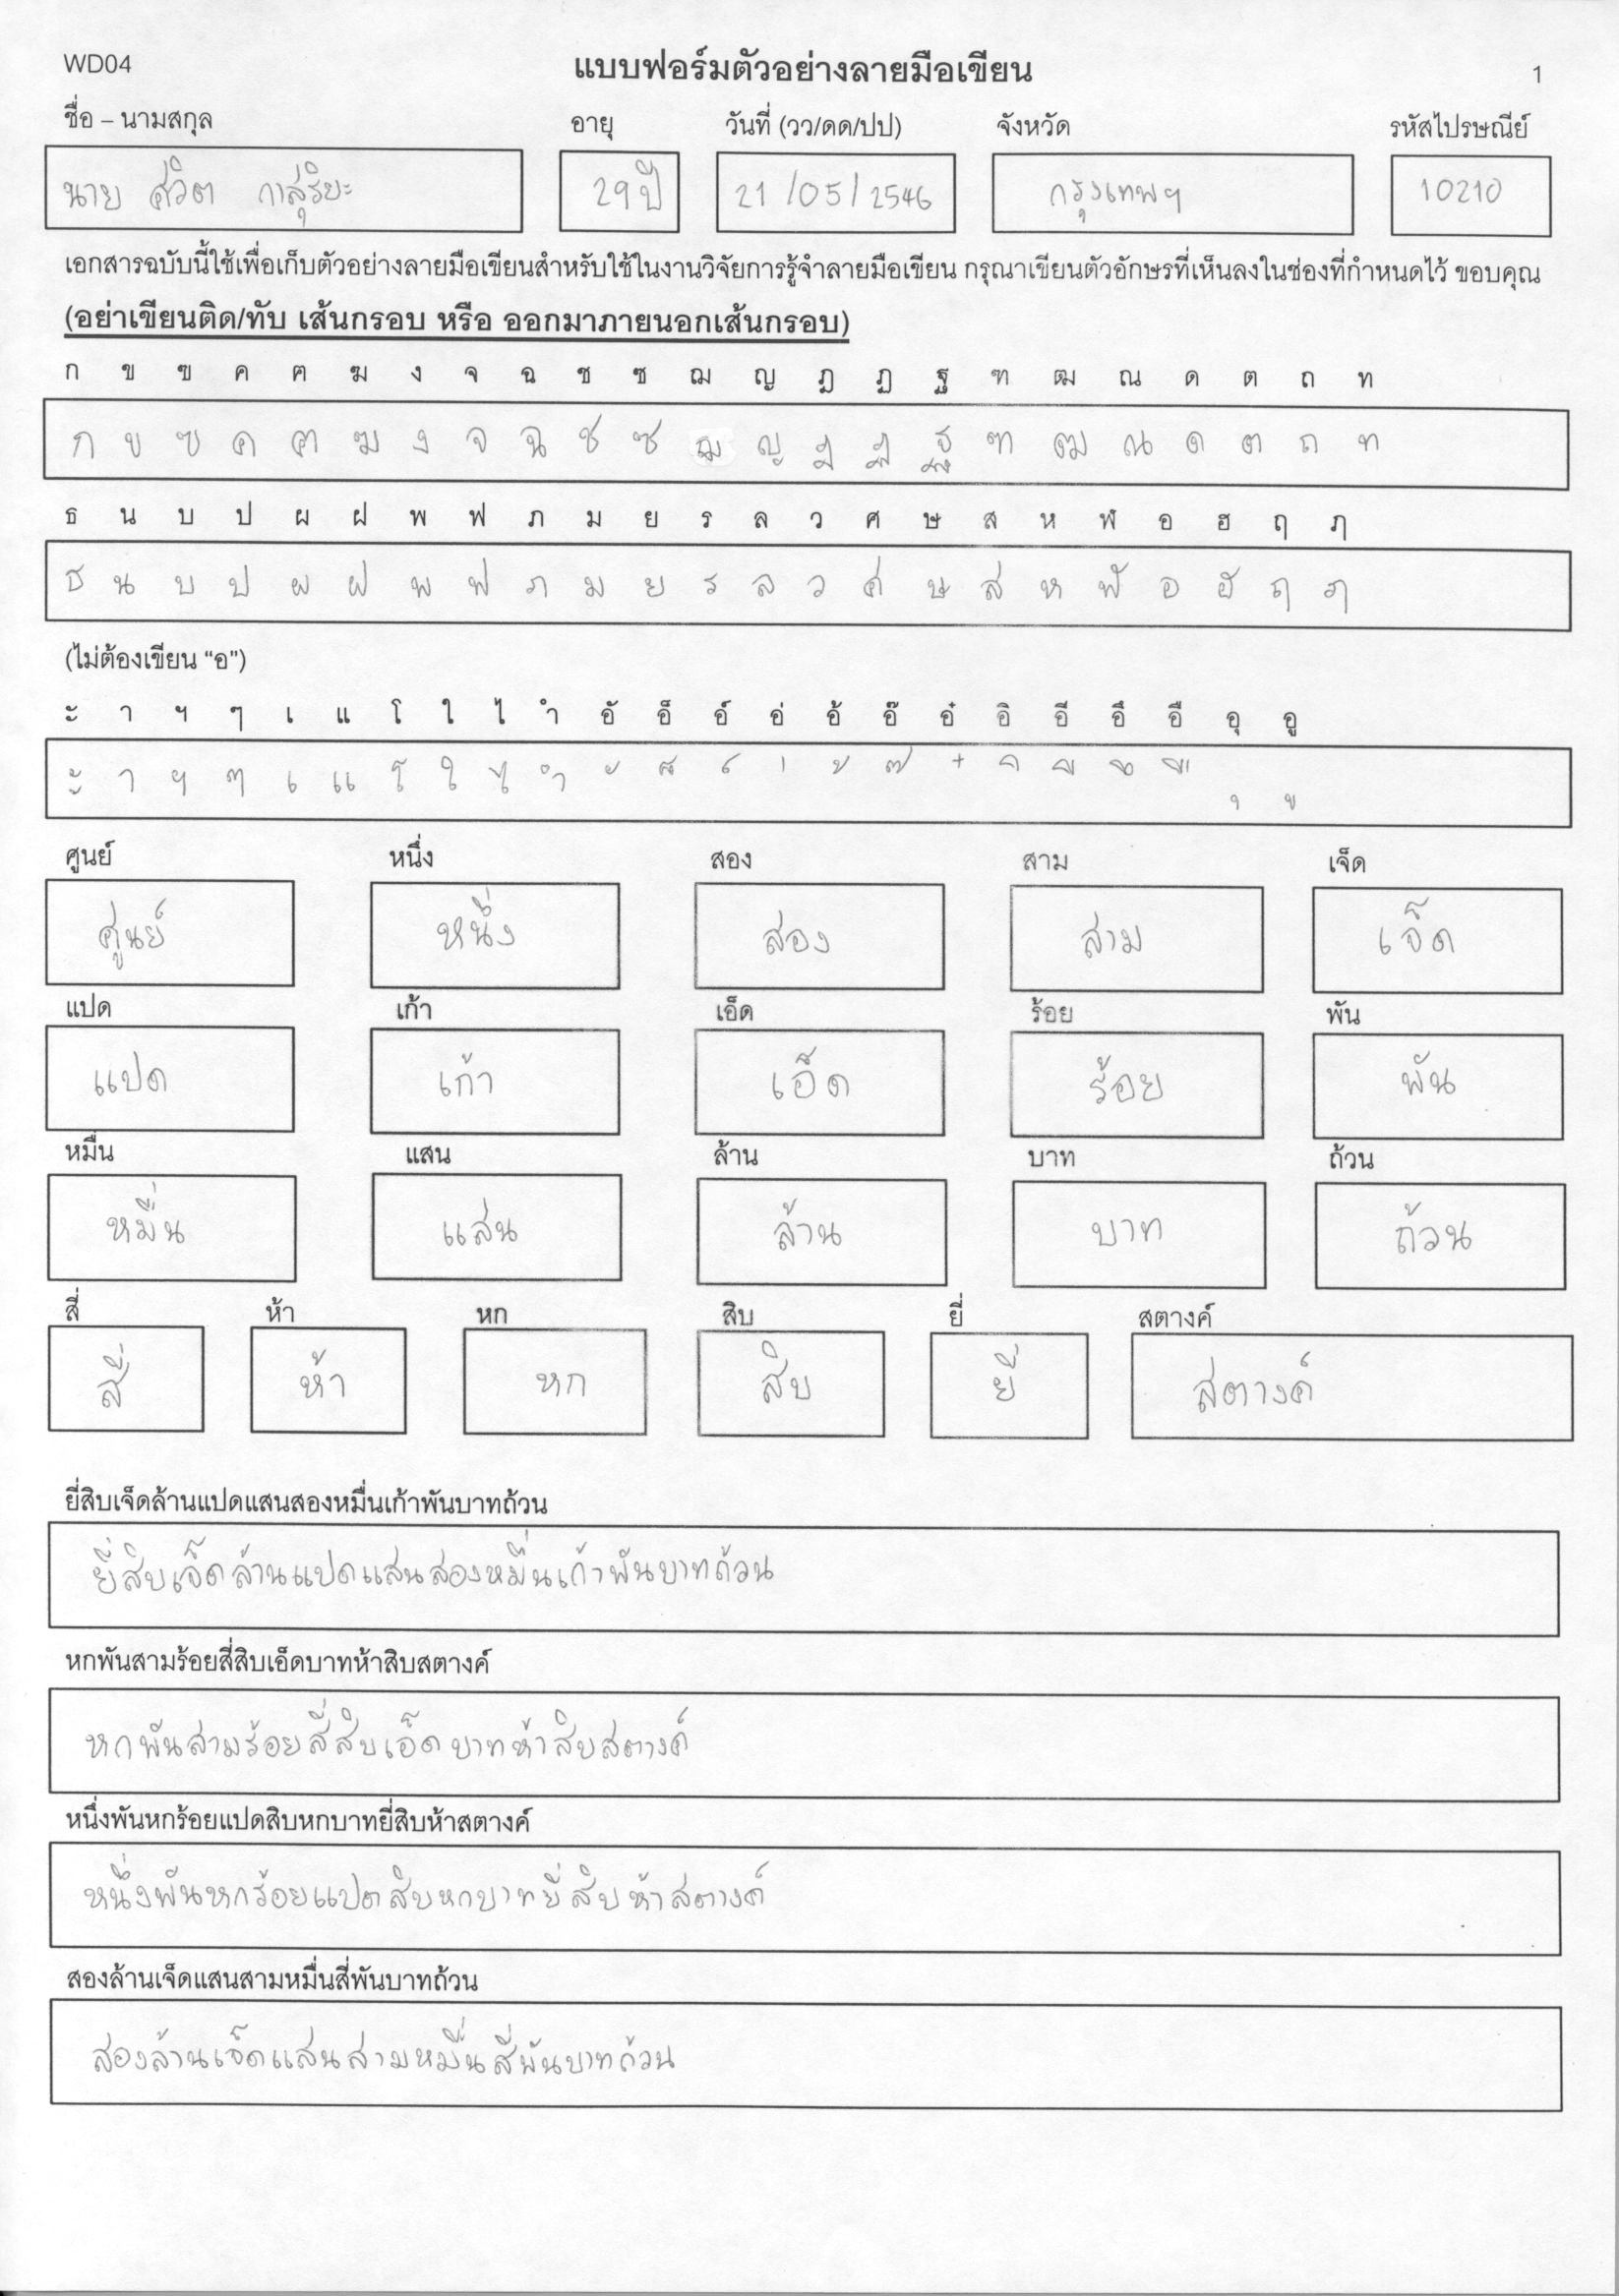 WD04 แบบฟอร์มตัวอย่างลายมือเขียน 1
ชื่อ – นามสกุล อายุ วันที่ (วว/ดด/ปป) จังหวัด รหัสไปรษณีย์
นาย ศวิต กาสุริยะ 29ปี 21/05/2546 กรุงเทพฯ 10210
เอกสารฉบับนี้ใช้เพื่อเก็บตัวอย่างลายมือเขียนสำหรับใช้ในงานวิจัยการรู้จำลายมือเขียน กรุณาเขียนตัวอักษรที่เห็นลงในช่องที่กำหนดไว้ ขอบคุณ
(อย่าเขียนติด/ทับ เส้นกรอบ หรือ ออกมาภายนอกเส้นกรอบ)
ก ข ฃ ค ฅ ฆ ง จ ฉ ช ซ ฌ ญ ฎ ฏ ฐ ฑ ฒ ณ ด ต ถ ท
ก ข ฃ ค ฅ ฆ ง จ ฉ ช ซ ฌ ญ ฎ ฏ ฐ ฑ ฒ ณ ด ต ถ ท
ธ น บ ป ผ ฝ พ ฟ ภ ม ย ร ล ว ศ ษ ส ห ฬ อ ฮ ฤ ฦ
ธ น บ ป ผ ฝ พ ฟ ภ ม ย ร ล ว ศ ษ ส ห ฬ อ ฮ ฤ ฦ
(ไม่ต้องเขียน “อ”)
ะ า ฯ ๆ เ แ โ ใ ไ ำ อั อ็ อ์ อ่ อ้ อ๊ อ๋ อิ อี อึ อื อุ อู
ะ า ฯ ๆ เ แ โ ใ ไ ำ ั ็ ์ ่ ้ ๊ ๋ ิ ี ึ ื ุ ู
ศูนย์ หนึ่ง สอง สาม เจ็ด
ศูนย์ หนึ่ง สอง สาม เจ็ด
แปด เก้า เอ็ด ร้อย พัน
แปด เก้า เอ็ด ร้อย พัน
หมื่น แสน ล้าน บาท ถ้วน
หมื่น แสน ล้าน บาท ถ้วน
สี่ ห้า หก สิบ ยี่ สตางค์
สี่ ห้า หก สิบ ยี่ สตางค์
ยี่สิบเจ็ดล้านแปดแสนสองหมื่นเก้าพันบาทถ้วน
ยี่สิบเจ็ดล้านแปดแสนสองหมื่นเก้าพันบาทถ้วน
หกพันสามร้อยสี่สิบเอ็ดบาทห้าสิบสตางค์
หกพันสามร้อยสี่สิบเอ็ดบาทห้าสิบสตางค์
หนึ่งพันหกร้อยแปดสิบหกบาทยี่สิบห้าสตางค์
หนึ่งพันหกร้อยแปดสิบหกบาทยี่สิบห้าสตางค์
สองล้านเจ็ดแสนสามหมื่นสี่พันบาทถ้วน
สองล้านเจ็ดแสนสามหมื่นสี่พันบาทถ้วน